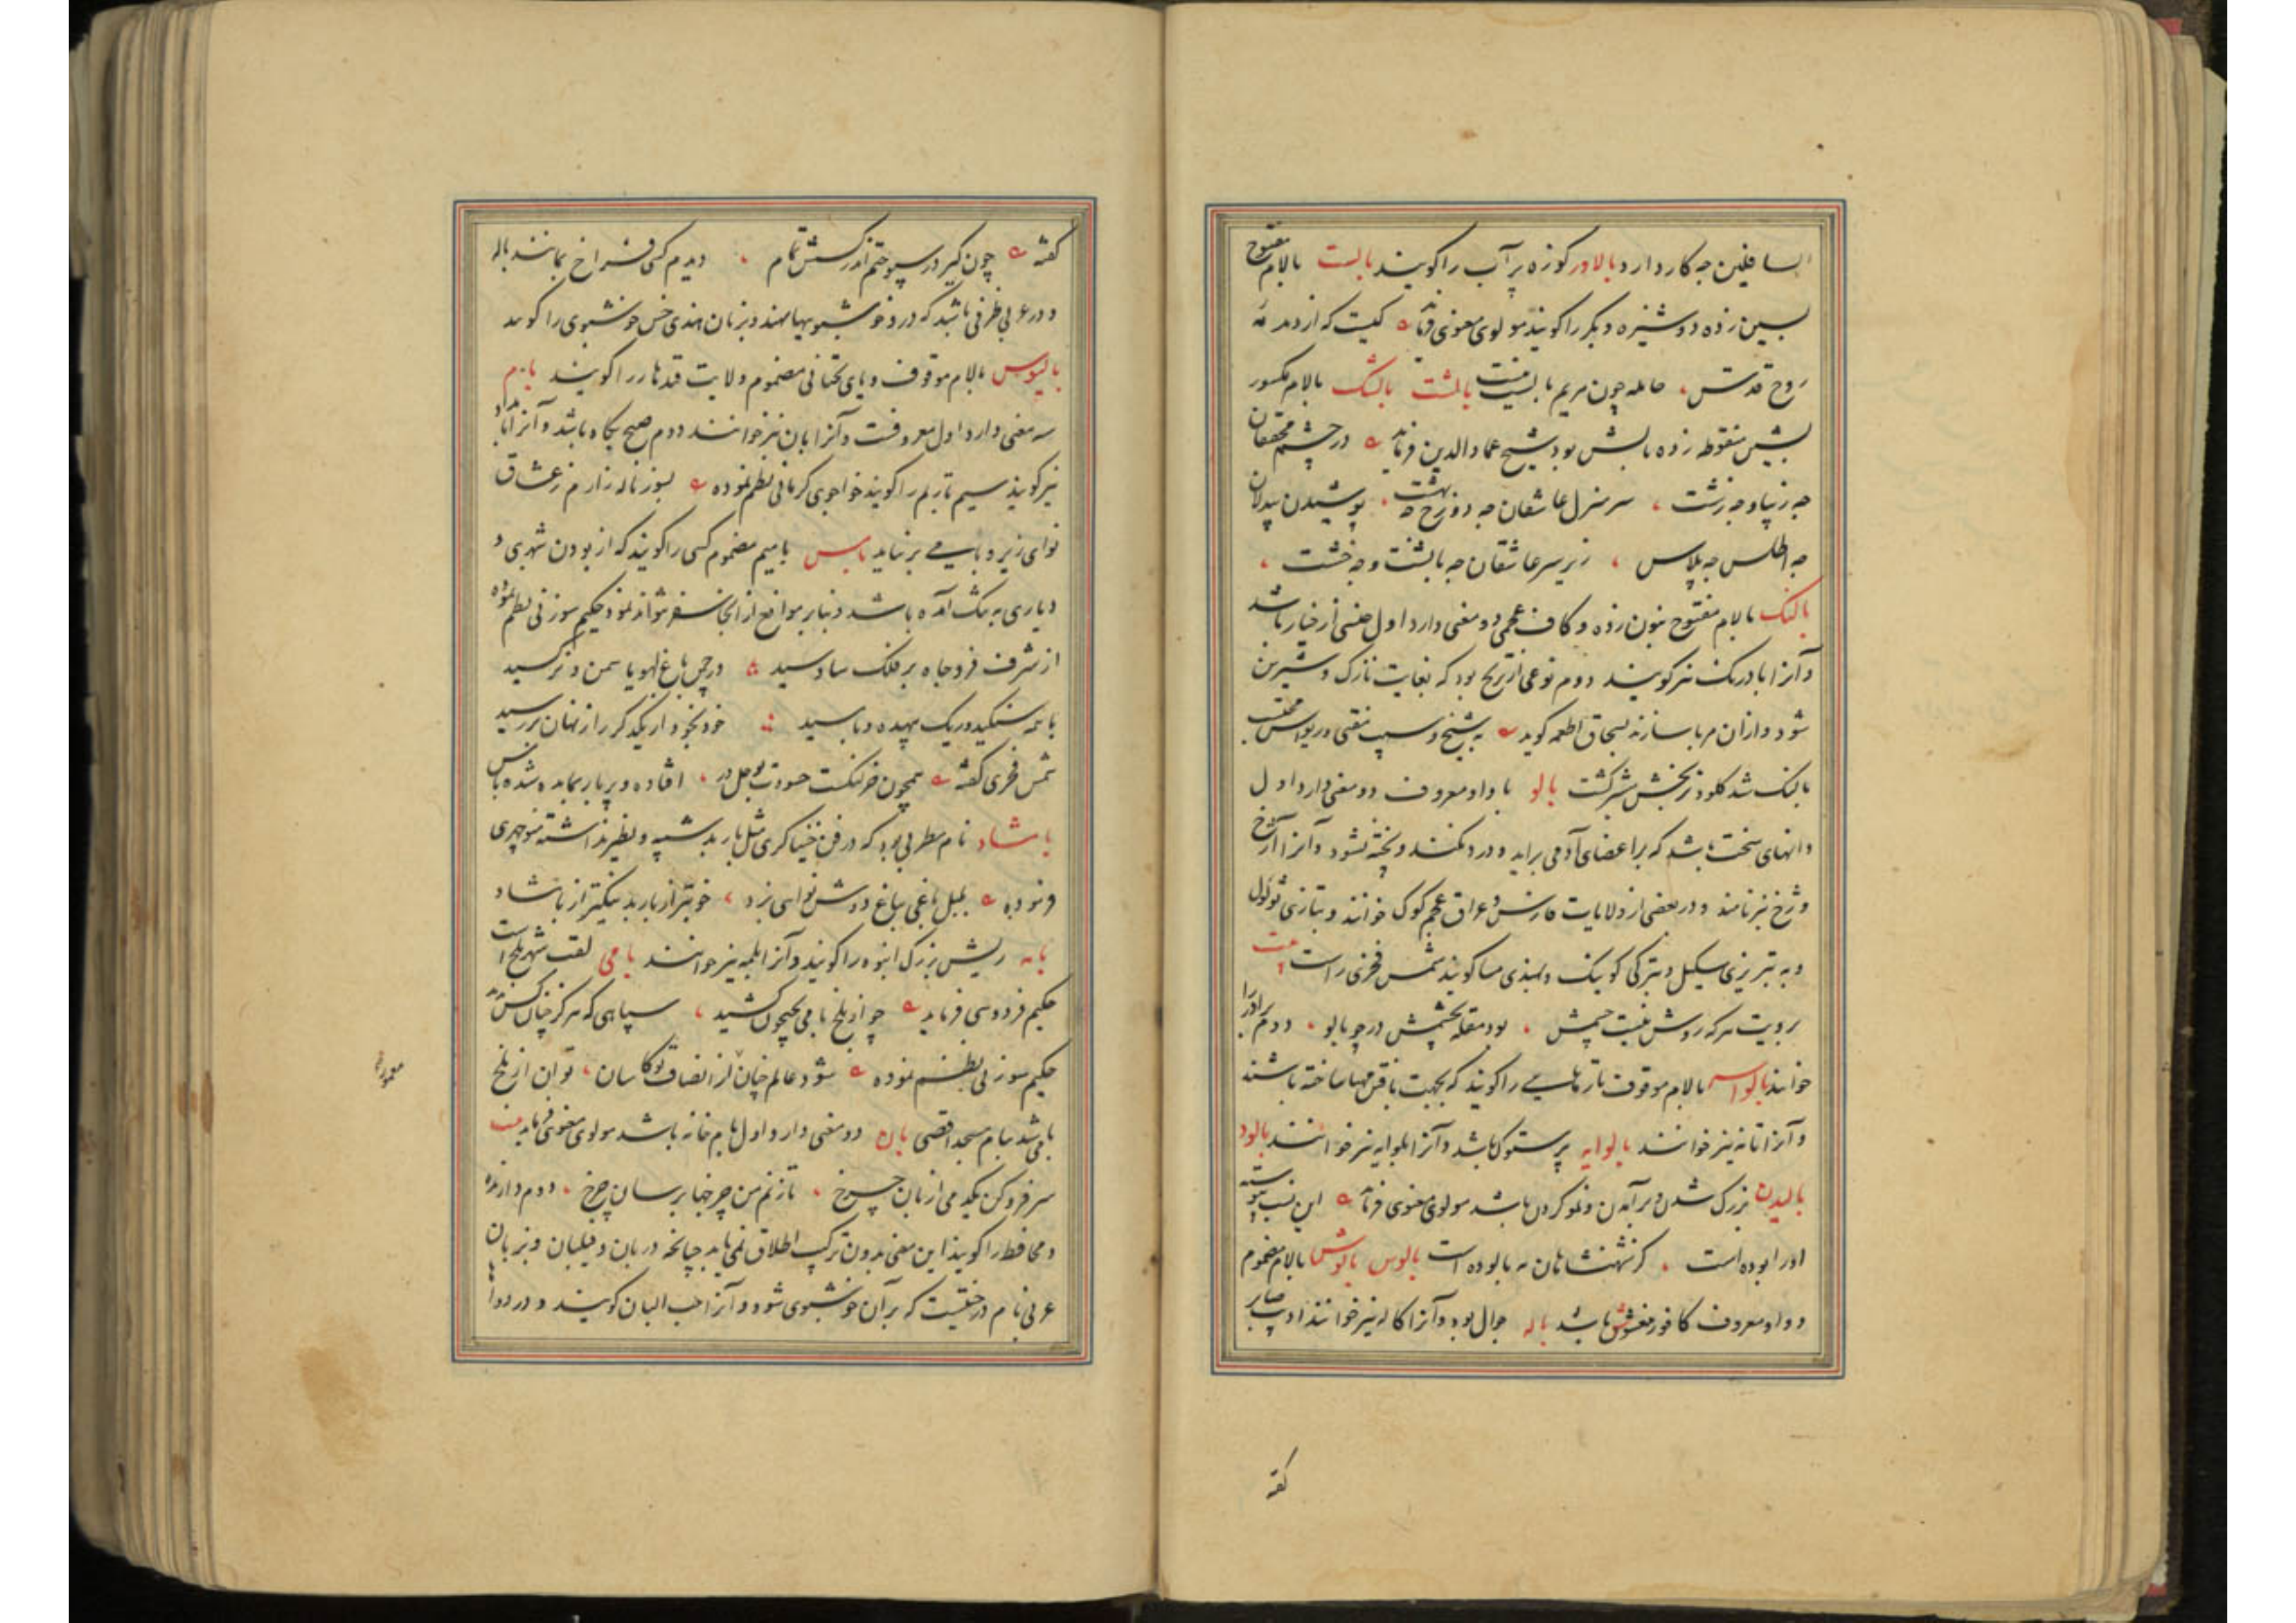 السافلین چه کار دارد بالادر کوزه پر آب را گویند بالست بالام مفتوح
بسین زده دوشیزه و بکر را گویند مولوی معنوی فرماید کیست که از دمدمه
روح قدس حامله چون مریم بالست نیست بالشت بالشک بالام مکسور
بشین منقوطه زده بالش بود شیخ عماد الدین فرماید در چشم محققان
چه زیبا و چه زشت سر منزل عاشقان چه دوزخ چه بهشت پوشیدن بیدلان
چه اطلس چه پلاس زیر سر عاشقان چه بالشت و چه خشت
بالنک بالام مفتوح بنون زده و کاف عجمی دو معنی دارد اول جنسی از خیار باشد
و آنرا بادرنک نیز گویند دوم نوعی از ترنج بود که بغایت نازک و شیرین
شود و ازان مربا سازند بسحاق اطعمه گوید به شیخ و سیب منقی در یواس محتسب
بالنک شد کلو و ترنجش سر گشت بالو با واو معروف دو معنی دارد اول
دانهای سخت باشد که بر اعضای آدمی برآید و درد نکند و پخته نشود و آنرا آژخ
و ژخ نیز نامند و در بعضی از ولایات فارس و عراق عجم کوک خوانند و بتازی ثؤلول
و به تبریزی سکیل و بترکی کوینک و بهندی مسا گویند شمس فخری راست بیت
برویت هر که روشن نیست چشمش بود مقله بچشمش در چو بالو دوم برادر را
خوانند بالواسه بالام موقوف تارهایی را گویند که بجهت بافتن مهیا ساخته باشند
و آنرا تانه نیز خوانند بالوایه پرستوک باشد و آنرا بلوایه نیز خوانند بالود
بالیدن بزرگ شدن و برآمدن و نمو کردن باشد مولوی معنوی فرماید این نسب پیوسته
اورا بوده است کز شهنشاهان مه بالوده است بالوس بالوش بالام مضموم
و واو معروف کافور مغشوش باشد باله جوال بود و آنرا کاله نیز خوانند ادیب صابر
گفته
گفته چون کیر در سپوختم اندر کسش تمام دیدم کسی فراخ بمانند باله
و در عربی ظرفی باشد که درو خوشبویها نهند و بزبان هندی خس خوشبوی را گویند
بالیوس بالام موقوف و یای تحتانی مضموم ولایت قندهار را گویند بام
سه معنی دارد اول معروفست و آنرا بان نیز خوانند دوم صبح بگاه باشد و آنرا بامداد
نیز گویند سیم تار بم را گویند خواجوی کرمانی نظم نموده بسوز ناله زارم ز عشاق
نوای زیر و بامی بر نیاید بامس بامیم مضموم کسی را گویند که از بودن شهری و
دیاری به تنک آمده باشد و بنابر موانع از انجا سفر نتواند نمود حکیم سوزنی نظم نموده
از شرف قدر و جاه بر فلک سادسید در چمن باغ لهو یاسمن و نرکسید
با همه سنکید و ریک بیهده و بامسید خود نخرد از یکدگر راز نهان بررسید
شمس فخری گفته همچون خر لنکست حسودت بوحل در افتاده و پر بار بمانده شده بامس
بامشاد نام مطربی بود که در فن خنیاگری مثل باربد شبیه و نظیر نداشته منوچهری
فرموده بلبل باغی بباغ دوش نوایی بزد خوبتر از باربد نیکتر از بامشاد
بامه ریش بزرگ انبوه را گویند و آنرا بلمه نیز خوانند بامی لقب شهر بلخ است
حکیم فردوسی فرماید چو از بلخ بامی بجیحون کشید سپاهی که هرگز چنان کس ندید
حکیم سوزنی بنظم نموده شود عالم چنان از انصاف تو کآسان توان از بلخ
بامی شد ببام مسجد اقصی بان دو معنی دارد اول بام خانه باشد مولوی معنوی فرماید بیت
سر فرو کن یکدمی از بان چرخ تا زنم من چرخها بر سان چرخ دوم دارنده
و محافظ را گویند این معنی بدون ترکیب اطلاق نمی یابد چنانچه دربان و فیلبان و بزبان
عربی نام درختیست که بر آن خوشبوی شود و آنرا حب البان گویند و در دواها
معمورة